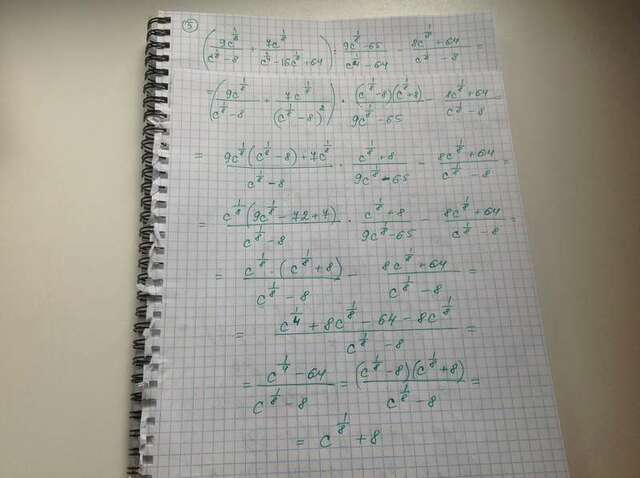 5
(9c^(1/8)/(c^(1/8) - 8) + 7c^(1/8)/(c^(1/4) - 16c^(1/8) + 64)) : (9c^(1/8) - 65)/(c^(1/4) - 64) - (8c^(1/8) + 64)/(c^(1/8) - 8) =
= (9c^(1/8)/(c^(1/8) - 8) + 7c^(1/8)/(c^(1/8) - 8)^2) · (c^(1/8) - 8)(c^(1/8) + 8)/(9c^(1/8) - 65) - (8c^(1/8) + 64)/(c^(1/8) - 8)
= (9c^(1/8)(c^(1/8) - 8) + 7c^(1/8))/(c^(1/8) - 8) · (c^(1/8) + 8)/(9c^(1/8) - 65) - (8c^(1/8) + 64)/(c^(1/8) - 8) =
= c^(1/8)(9c^(1/8) - 72 + 7)/(c^(1/8) - 8) · (c^(1/8) + 8)/(9c^(1/8) - 65) - (8c^(1/8) + 64)/(c^(1/8) - 8) =
= c^(1/8) · (c^(1/8) + 8)/(c^(1/8) - 8) - (8c^(1/8) + 64)/(c^(1/8) - 8) =
= (c^(1/4) + 8c^(1/8) - 64 - 8c^(1/8))/(c^(1/8) - 8) =
= (c^(1/4) - 64)/(c^(1/8) - 8) = (c^(1/8) - 8)(c^(1/8) + 8)/(c^(1/8) - 8) =
= c^(1/8) + 8